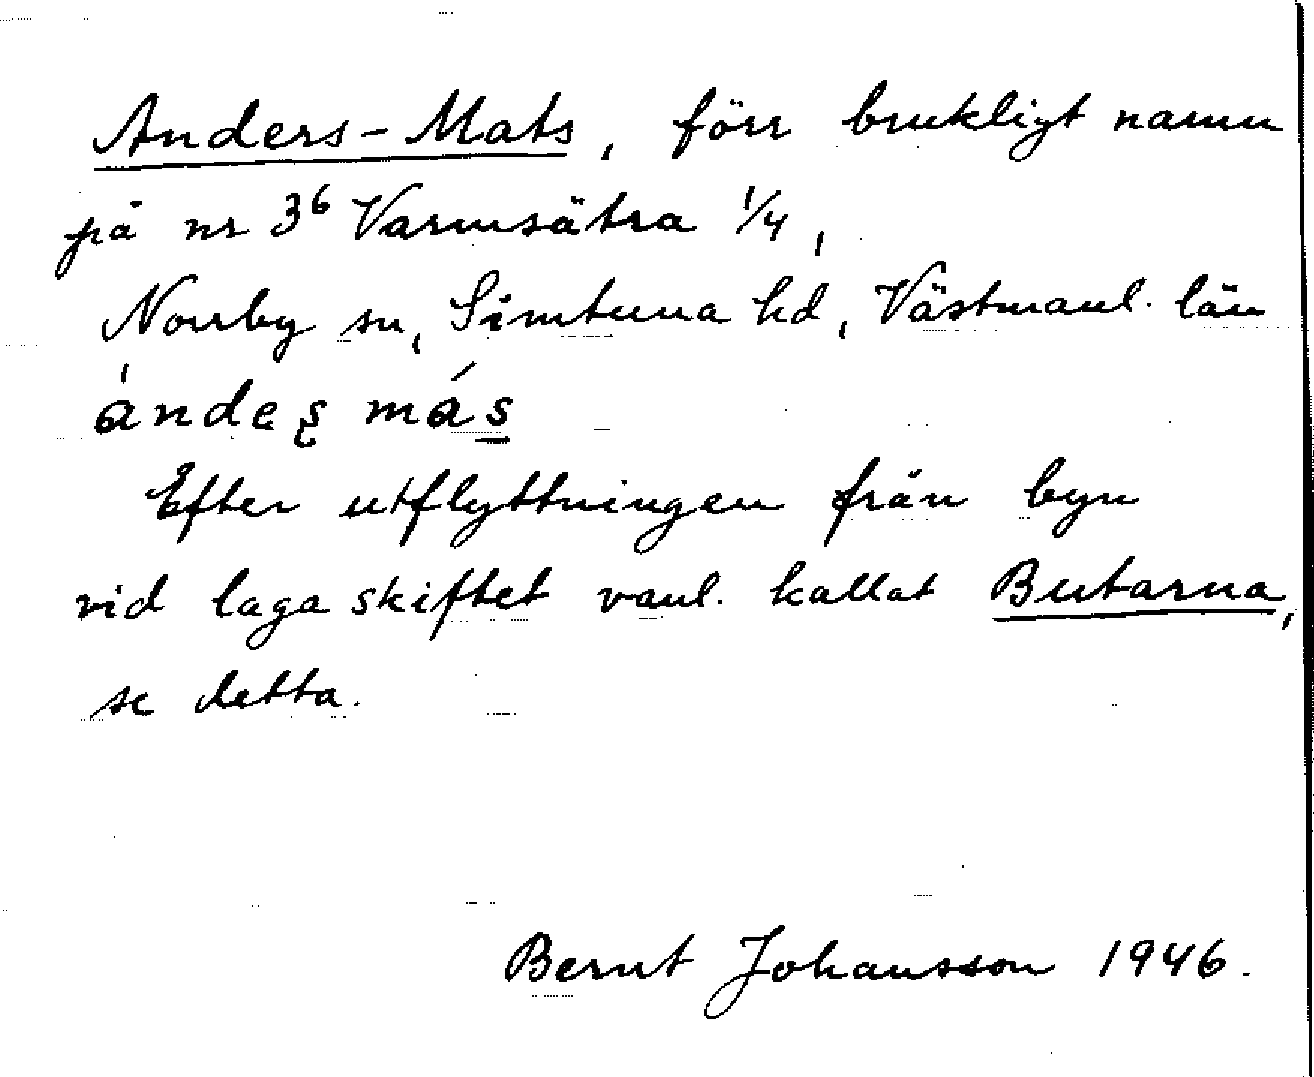 Anders-Mats, förr brukligt namn
på nr 3⁶ Varmsätra ¼,
Norrby sn, Simtuna hd, Västmanl. län
ándes más
Efter utflyttningen från byn
vid laga skiftet vanl. kallat Butarna,
se detta.
Bernt Johansson 1946.